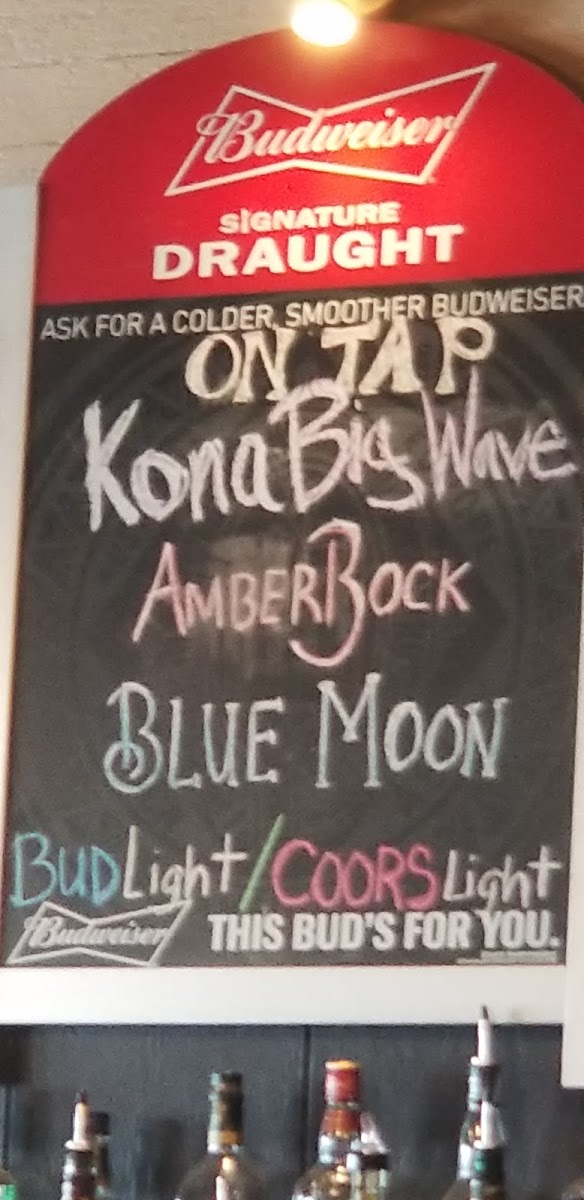 Budweiser
SIGNATURE
DRAUGHT
ASK FOR A COLDER, SMOOTHER BUDWEISER
ON TAP
Kona Big Wave
AMBERBOCK
BLUE MOON
BUD Light/COORS Light
Budweiser THIS BUD'S FOR YOU.